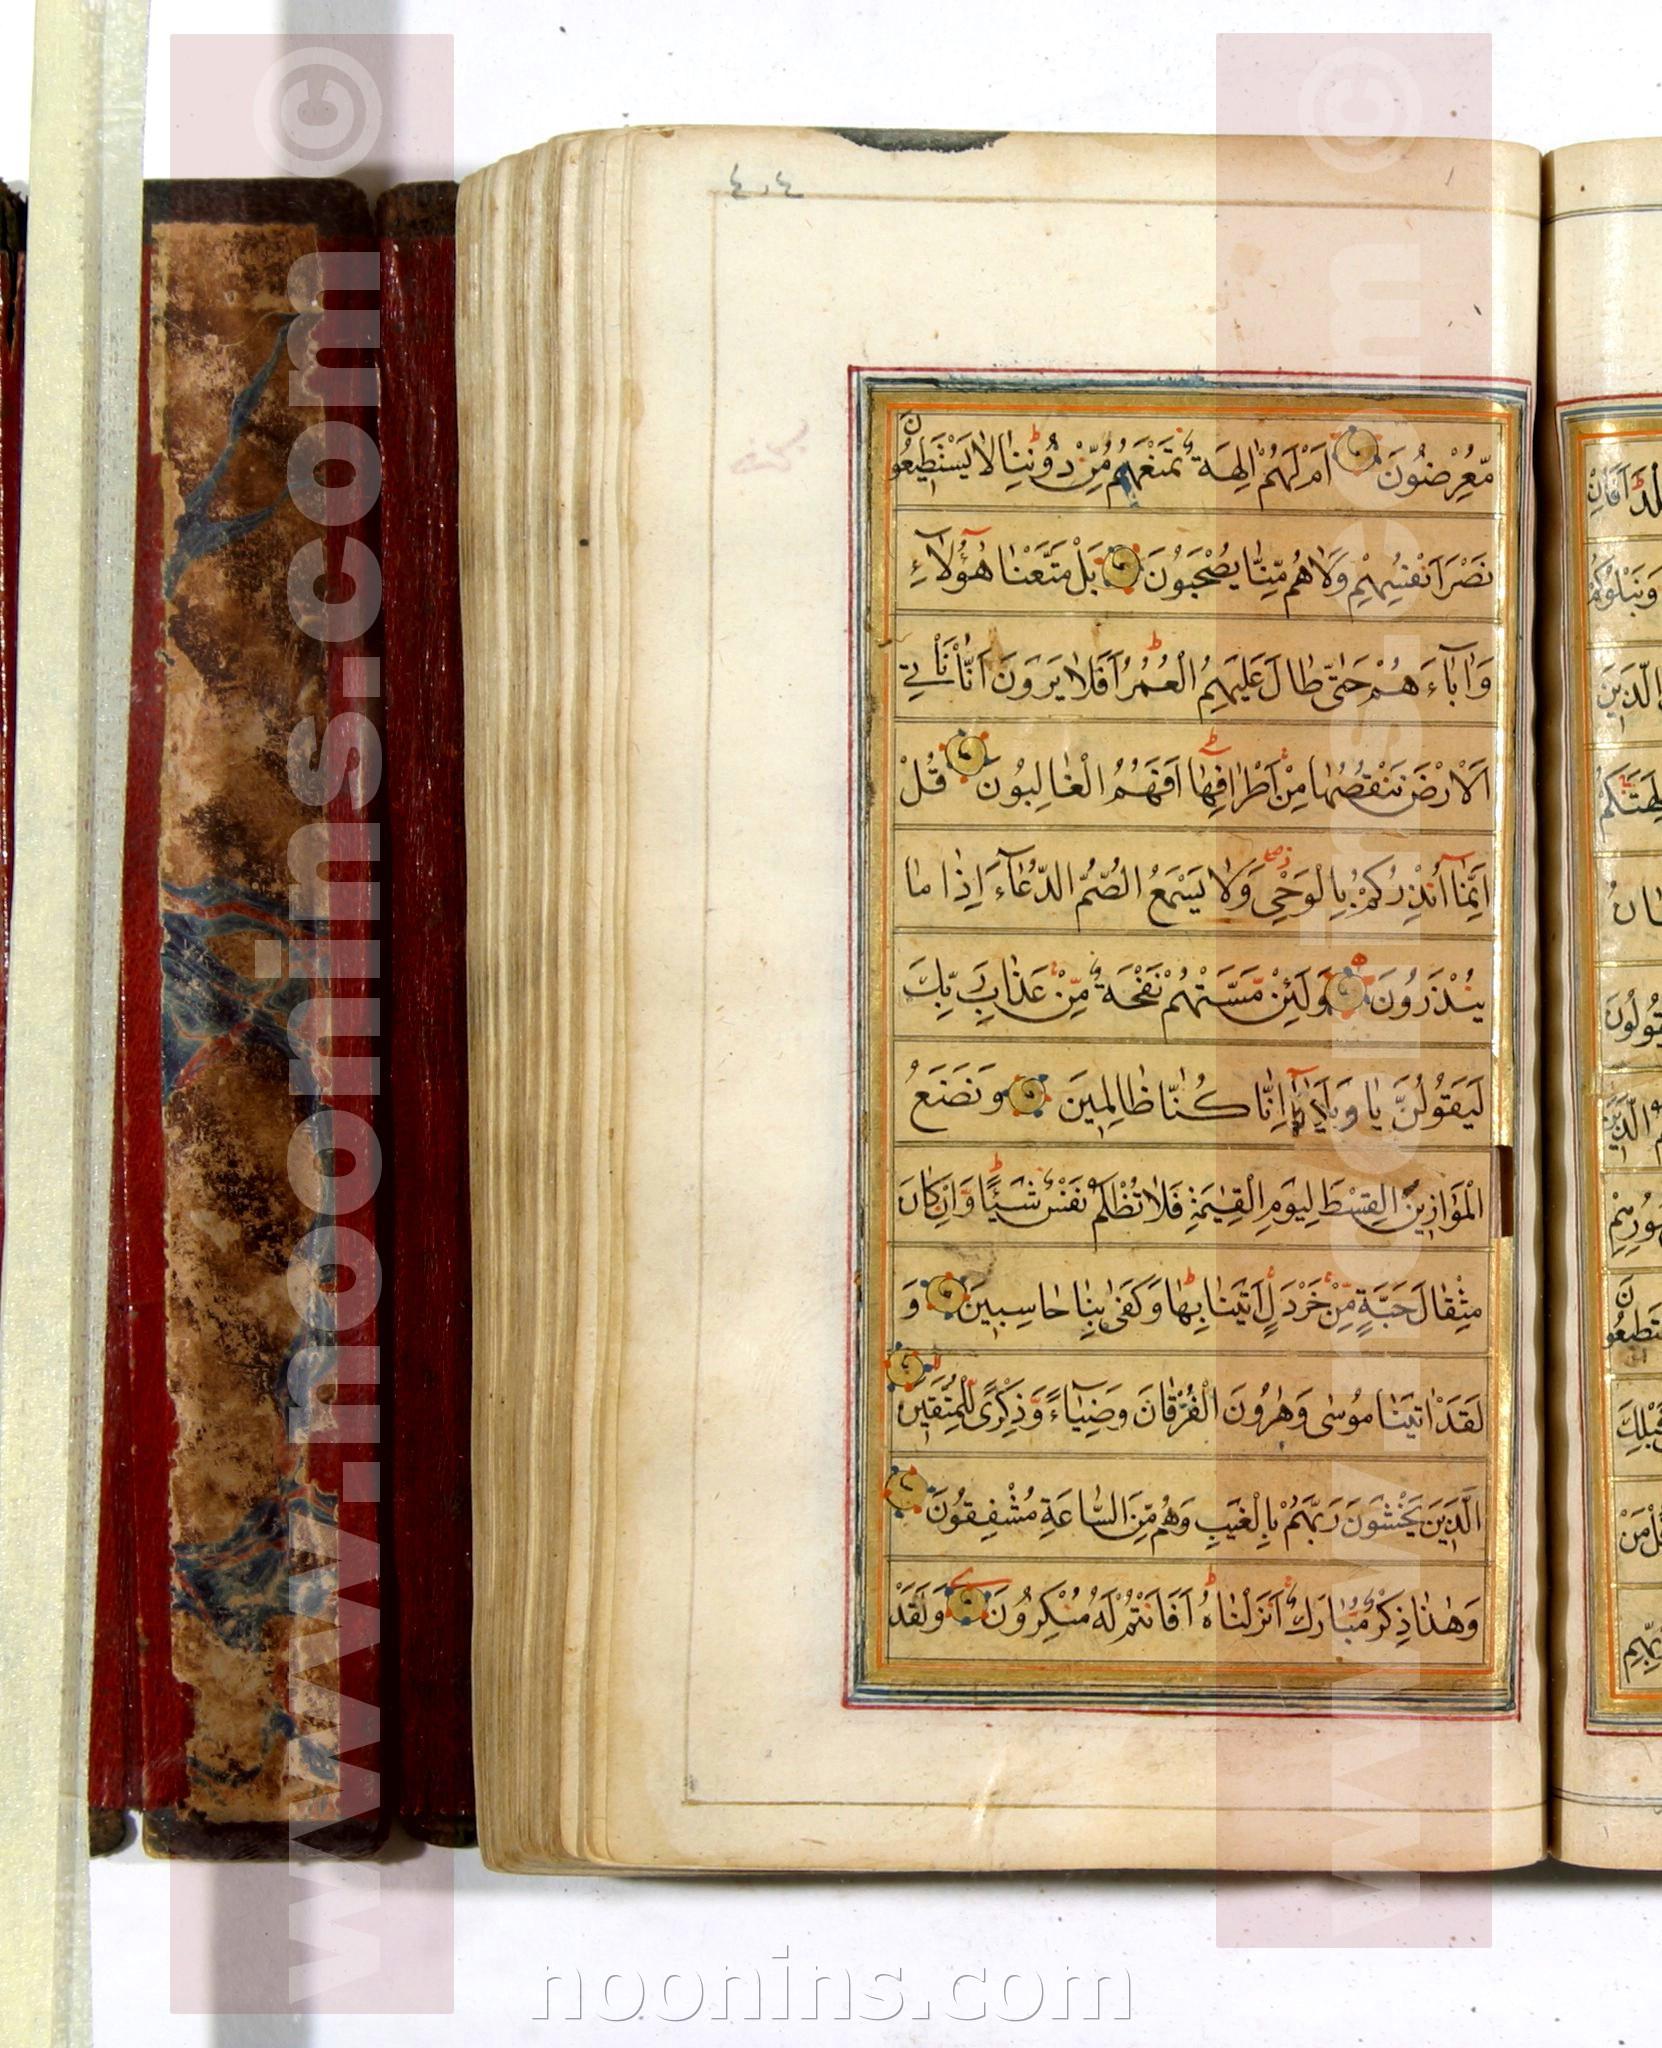 ٤٠٤
مُّعْرِضُونَ اَمْ لَهُمْ اٰلِهَةٌ تَمْنَعُهُمْ مِّنْ دُوْنِنٰا لاٰ يَسْتَطِيعُونَ
نَصْرَ اَنْفُسِهِمْ وَلاٰ هُمْ مِّنّٰا يُصْحَبُونَ بَلْ مَتَّعْنٰا هٰؤُلآءِ
وَاٰبٰآءَهُمْ حَتّٰى طٰالَ عَلَيْهِمُ الْعُمُرُ اَفَلاٰ يَرَوْنَ اَنّٰا نَاْتِي
الْاَرْضَ نَنْقُصُهٰا مِنْ اَطْرٰافِهٰا اَفَهُمُ الْغٰالِبُونَ قُلْ
اِنَّمٰا اُنْذِرُكُمْ بِالْوَحْيِ وَلاٰ يَسْمَعُ الصُّمُّ الدُّعٰآءَ اِذٰا مٰا
يُنْذَرُونَ وَلَئِنْ مَّسَّتْهُمْ نَفْحَةٌ مِّنْ عَذٰابِ رَبِّكَ
لَيَقُولُنَّ يٰا وَيْلَنٰا اِنّٰا كُنّٰا ظٰالِمِينَ وَنَضَعُ
الْمَوٰازِينَ الْقِسْطَ لِيَوْمِ الْقِيٰمَةِ فَلاٰ تُظْلَمُ نَفْسٌ شَيْئًا وَّاِنْ كٰانَ
مِثْقٰالَ حَبَّةٍ مِّنْ خَرْدَلٍ اَتَيْنٰا بِهٰا وَكَفٰى بِنٰا حٰاسِبِينَ وَ
لَقَدْ اٰتَيْنٰا مُوسٰى وَهٰرُونَ الْفُرْقٰانَ وَضِيٰآءً وَّذِكْرًى لِّلْمُتَّقِينَ
اَلَّذِينَ يَخْشَوْنَ رَبَّهُمْ بِالْغَيْبِ وَهُمْ مِّنَ السّٰاعَةِ مُشْفِقُونَ
وَهٰذٰا ذِكْرٌ مُّبٰارَكٌ اَنْزَلْنٰاهُ اَفَاَنْتُمْ لَهُ مُنْكِرُونَ وَلَقَدْ
www.noonins.com ©
www.noonins.com ©
noonins.com